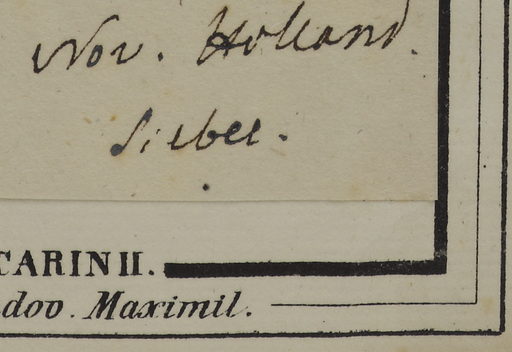 Nov. Holland.
Sieber.
CARINII.
dov. Maximil.